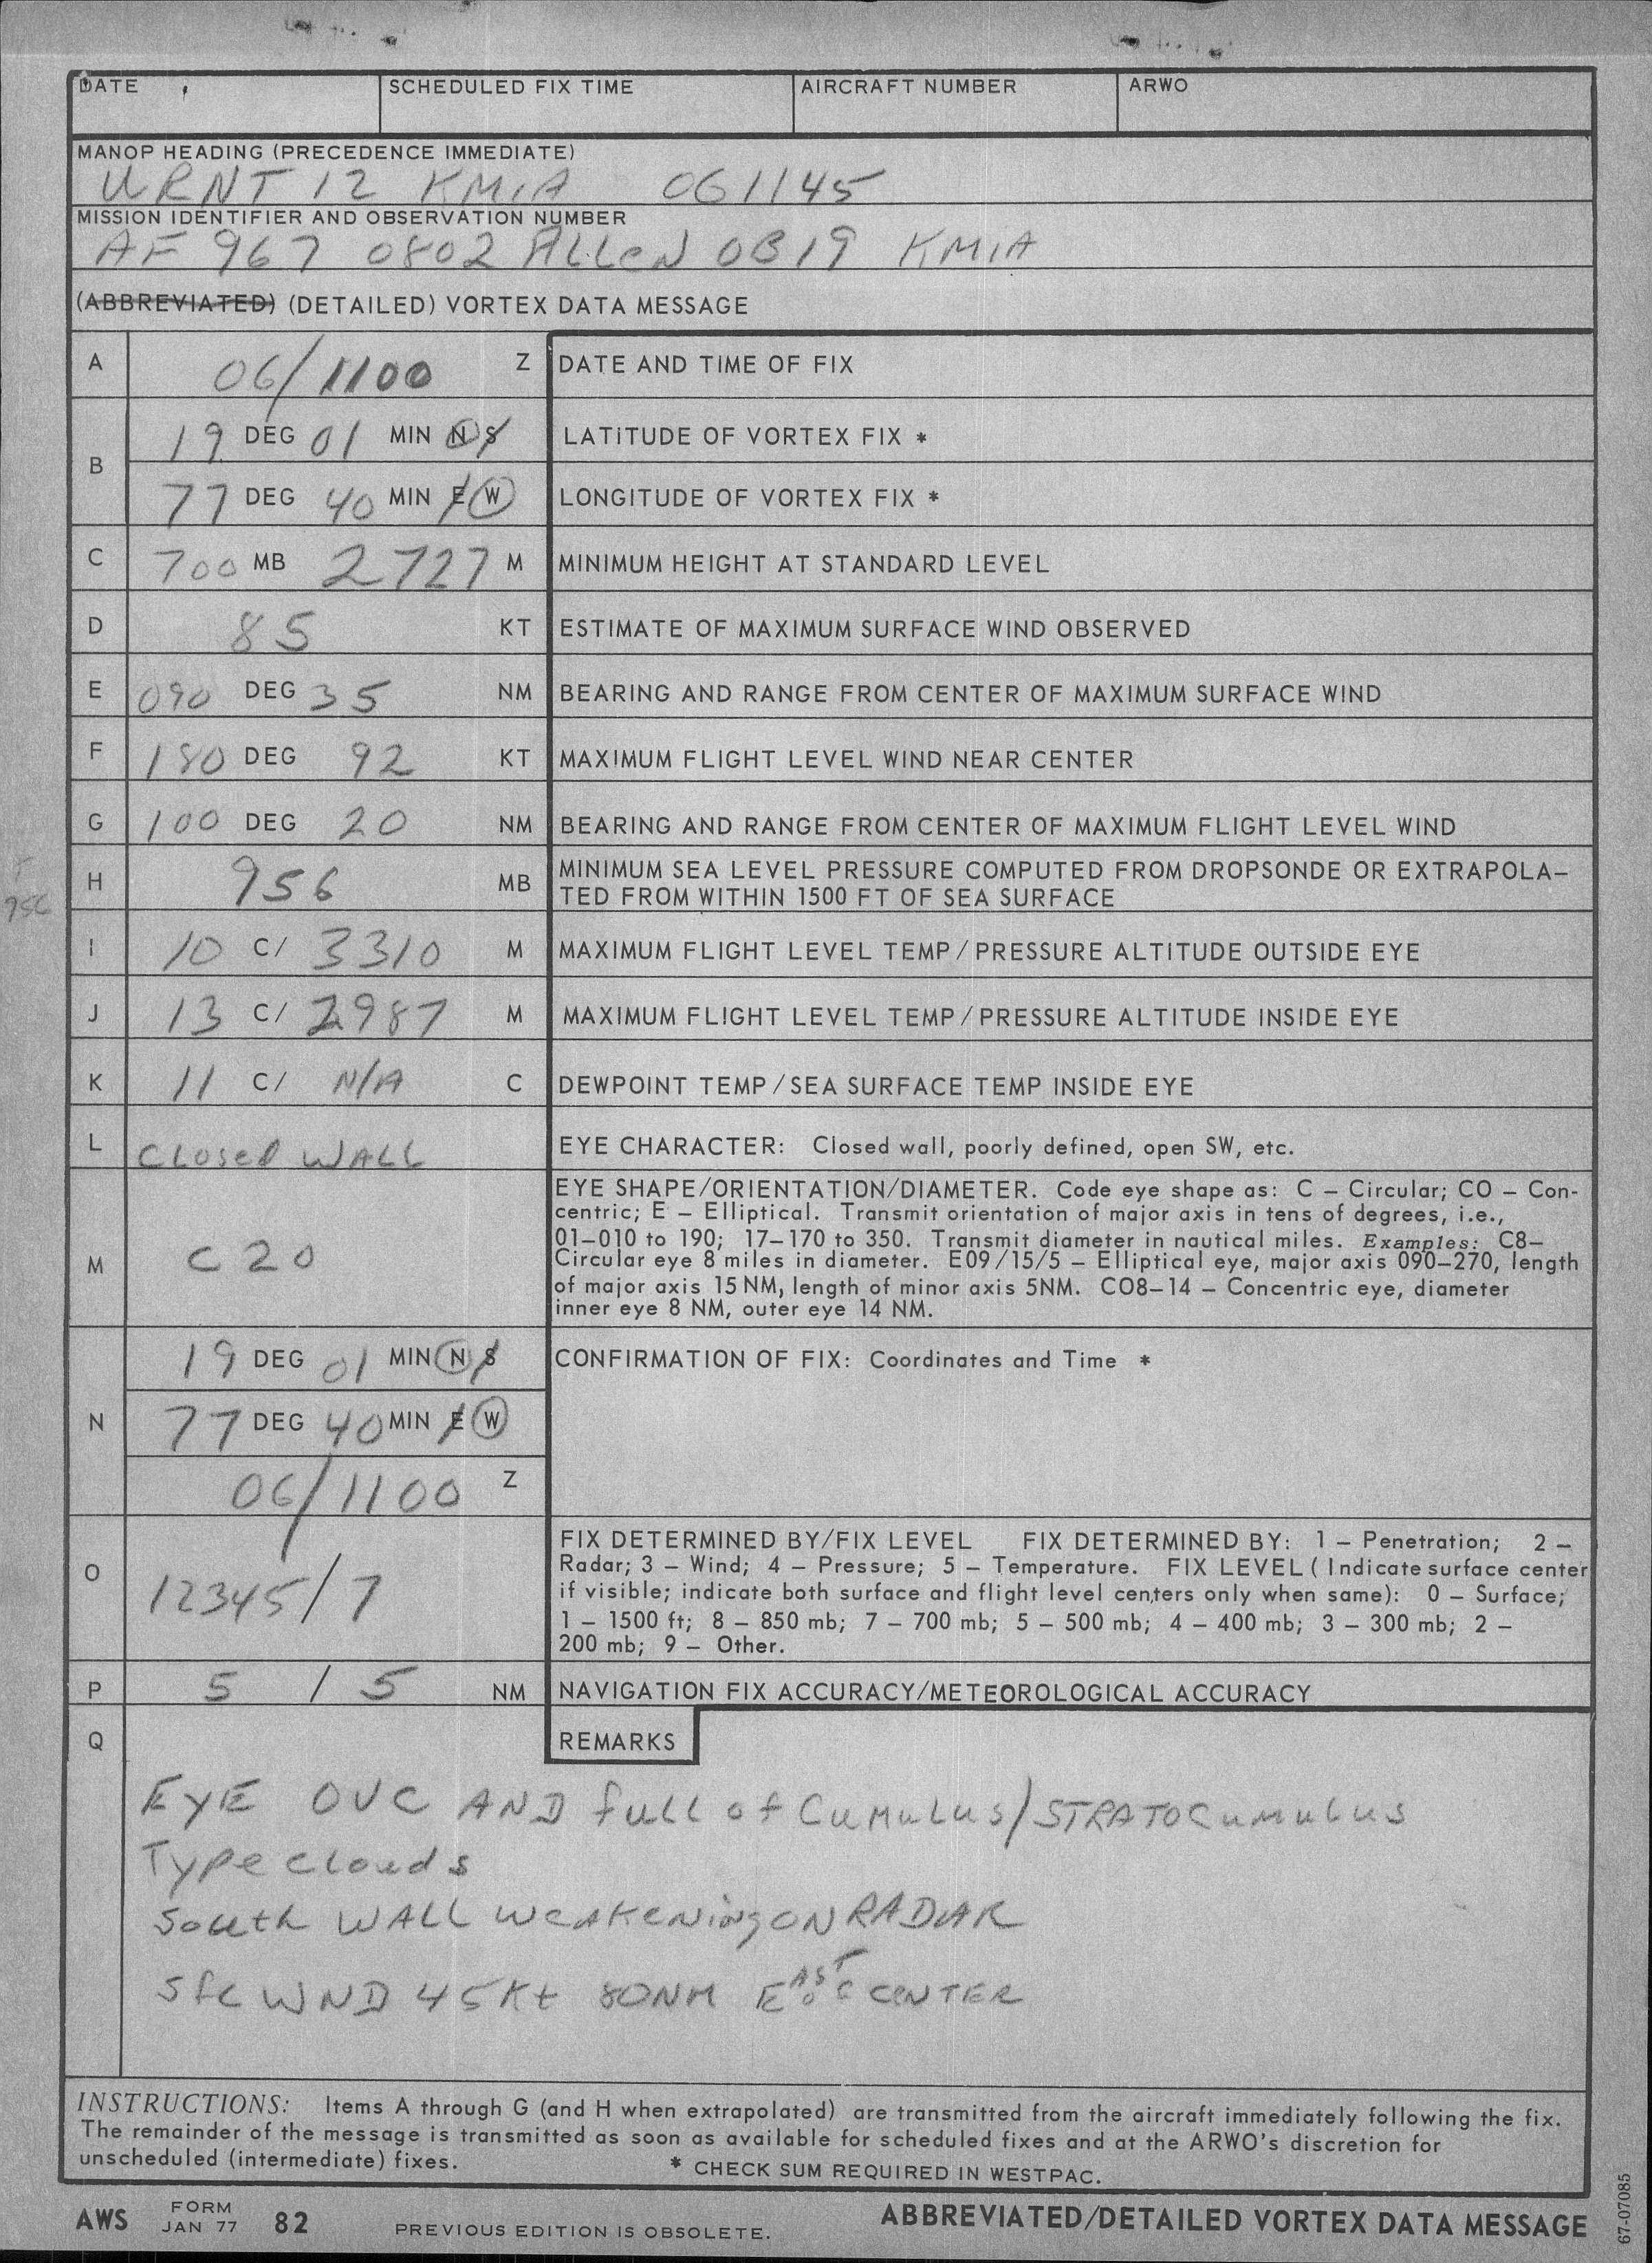 DATE SCHEDULED FIX TIME AIRCRAFT NUMBER ARWO
MANOP HEADING (PRECEDENCE IMMEDIATE)
URNT 12 KMIA 061145
MISSION IDENTIFIER AND OBSERVATION NUMBER
AF 967 0802 ALLeN OB 19 KMIA
(ABBREVIATED) (DETAILED) VORTEX DATA MESSAGE
A 06/1100 Z DATE AND TIME OF FIX
B 19 DEG 01 MIN N S LATITUDE OF VORTEX FIX *
77 DEG 40 MIN E W LONGITUDE OF VORTEX FIX *
C 700 MB 2727 M MINIMUM HEIGHT AT STANDARD LEVEL
D 85 KT ESTIMATE OF MAXIMUM SURFACE WIND OBSERVED
E 090 DEG 35 NM BEARING AND RANGE FROM CENTER OF MAXIMUM SURFACE WIND
F 180 DEG 92 KT MAXIMUM FLIGHT LEVEL WIND NEAR CENTER
G 100 DEG 20 NM BEARING AND RANGE FROM CENTER OF MAXIMUM FLIGHT LEVEL WIND
H 956 MB MINIMUM SEA LEVEL PRESSURE COMPUTED FROM DROPSONDE OR EXTRAPOLA-
TED FROM WITHIN 1500 FT OF SEA SURFACE
I 10 C/ 3310 M MAXIMUM FLIGHT LEVEL TEMP/PRESSURE ALTITUDE OUTSIDE EYE
J 13 C/ 2987 M MAXIMUM FLIGHT LEVEL TEMP/PRESSURE ALTITUDE INSIDE EYE
K 11 C/ N/A C DEWPOINT TEMP/SEA SURFACE TEMP INSIDE EYE
L CLOSed WALL EYE CHARACTER: Closed wall, poorly defined, open SW, etc.
M C20 EYE SHAPE/ORIENTATION/DIAMETER. Code eye shape as: C – Circular; CO – Con-
centric; E – Elliptical. Transmit orientation of major axis in tens of degrees, i.e.,
01–010 to 190; 17–170 to 350. Transmit diameter in nautical miles. Examples: C8–
Circular eye 8 miles in diameter. E09/15/5 – Elliptical eye, major axis 090–270, length
of major axis 15 NM, length of minor axis 5NM. CO8–14 – Concentric eye, diameter
inner eye 8 NM, outer eye 14 NM.
N 19 DEG 01 MIN N S CONFIRMATION OF FIX: Coordinates and Time *
77 DEG 40 MIN E W
06/1100 Z
O 12345/7 FIX DETERMINED BY/FIX LEVEL FIX DETERMINED BY: 1 – Penetration; 2 –
Radar; 3 – Wind; 4 – Pressure; 5 – Temperature. FIX LEVEL (Indicate surface center
if visible; indicate both surface and flight level centers only when same): 0 – Surface;
1 – 1500 ft; 8 – 850 mb; 7 – 700 mb; 5 – 500 mb; 4 – 400 mb; 3 – 300 mb; 2 –
200 mb; 9 – Other.
P 5 / 5 NM NAVIGATION FIX ACCURACY/METEOROLOGICAL ACCURACY
Q REMARKS
EYE OVC AND full of Cumulus/STRATOCumulus
Type clouds
South WALL WeAKeNing ON RADAR
Sfc WND 45Kt 80NM EAST of CENTER
INSTRUCTIONS: Items A through G (and H when extrapolated) are transmitted from the aircraft immediately following the fix.
The remainder of the message is transmitted as soon as available for scheduled fixes and at the ARWO's discretion for
unscheduled (intermediate) fixes. * CHECK SUM REQUIRED IN WESTPAC.
AWS FORM JAN 77 82 PREVIOUS EDITION IS OBSOLETE. ABBREVIATED/DETAILED VORTEX DATA MESSAGE
67-07085